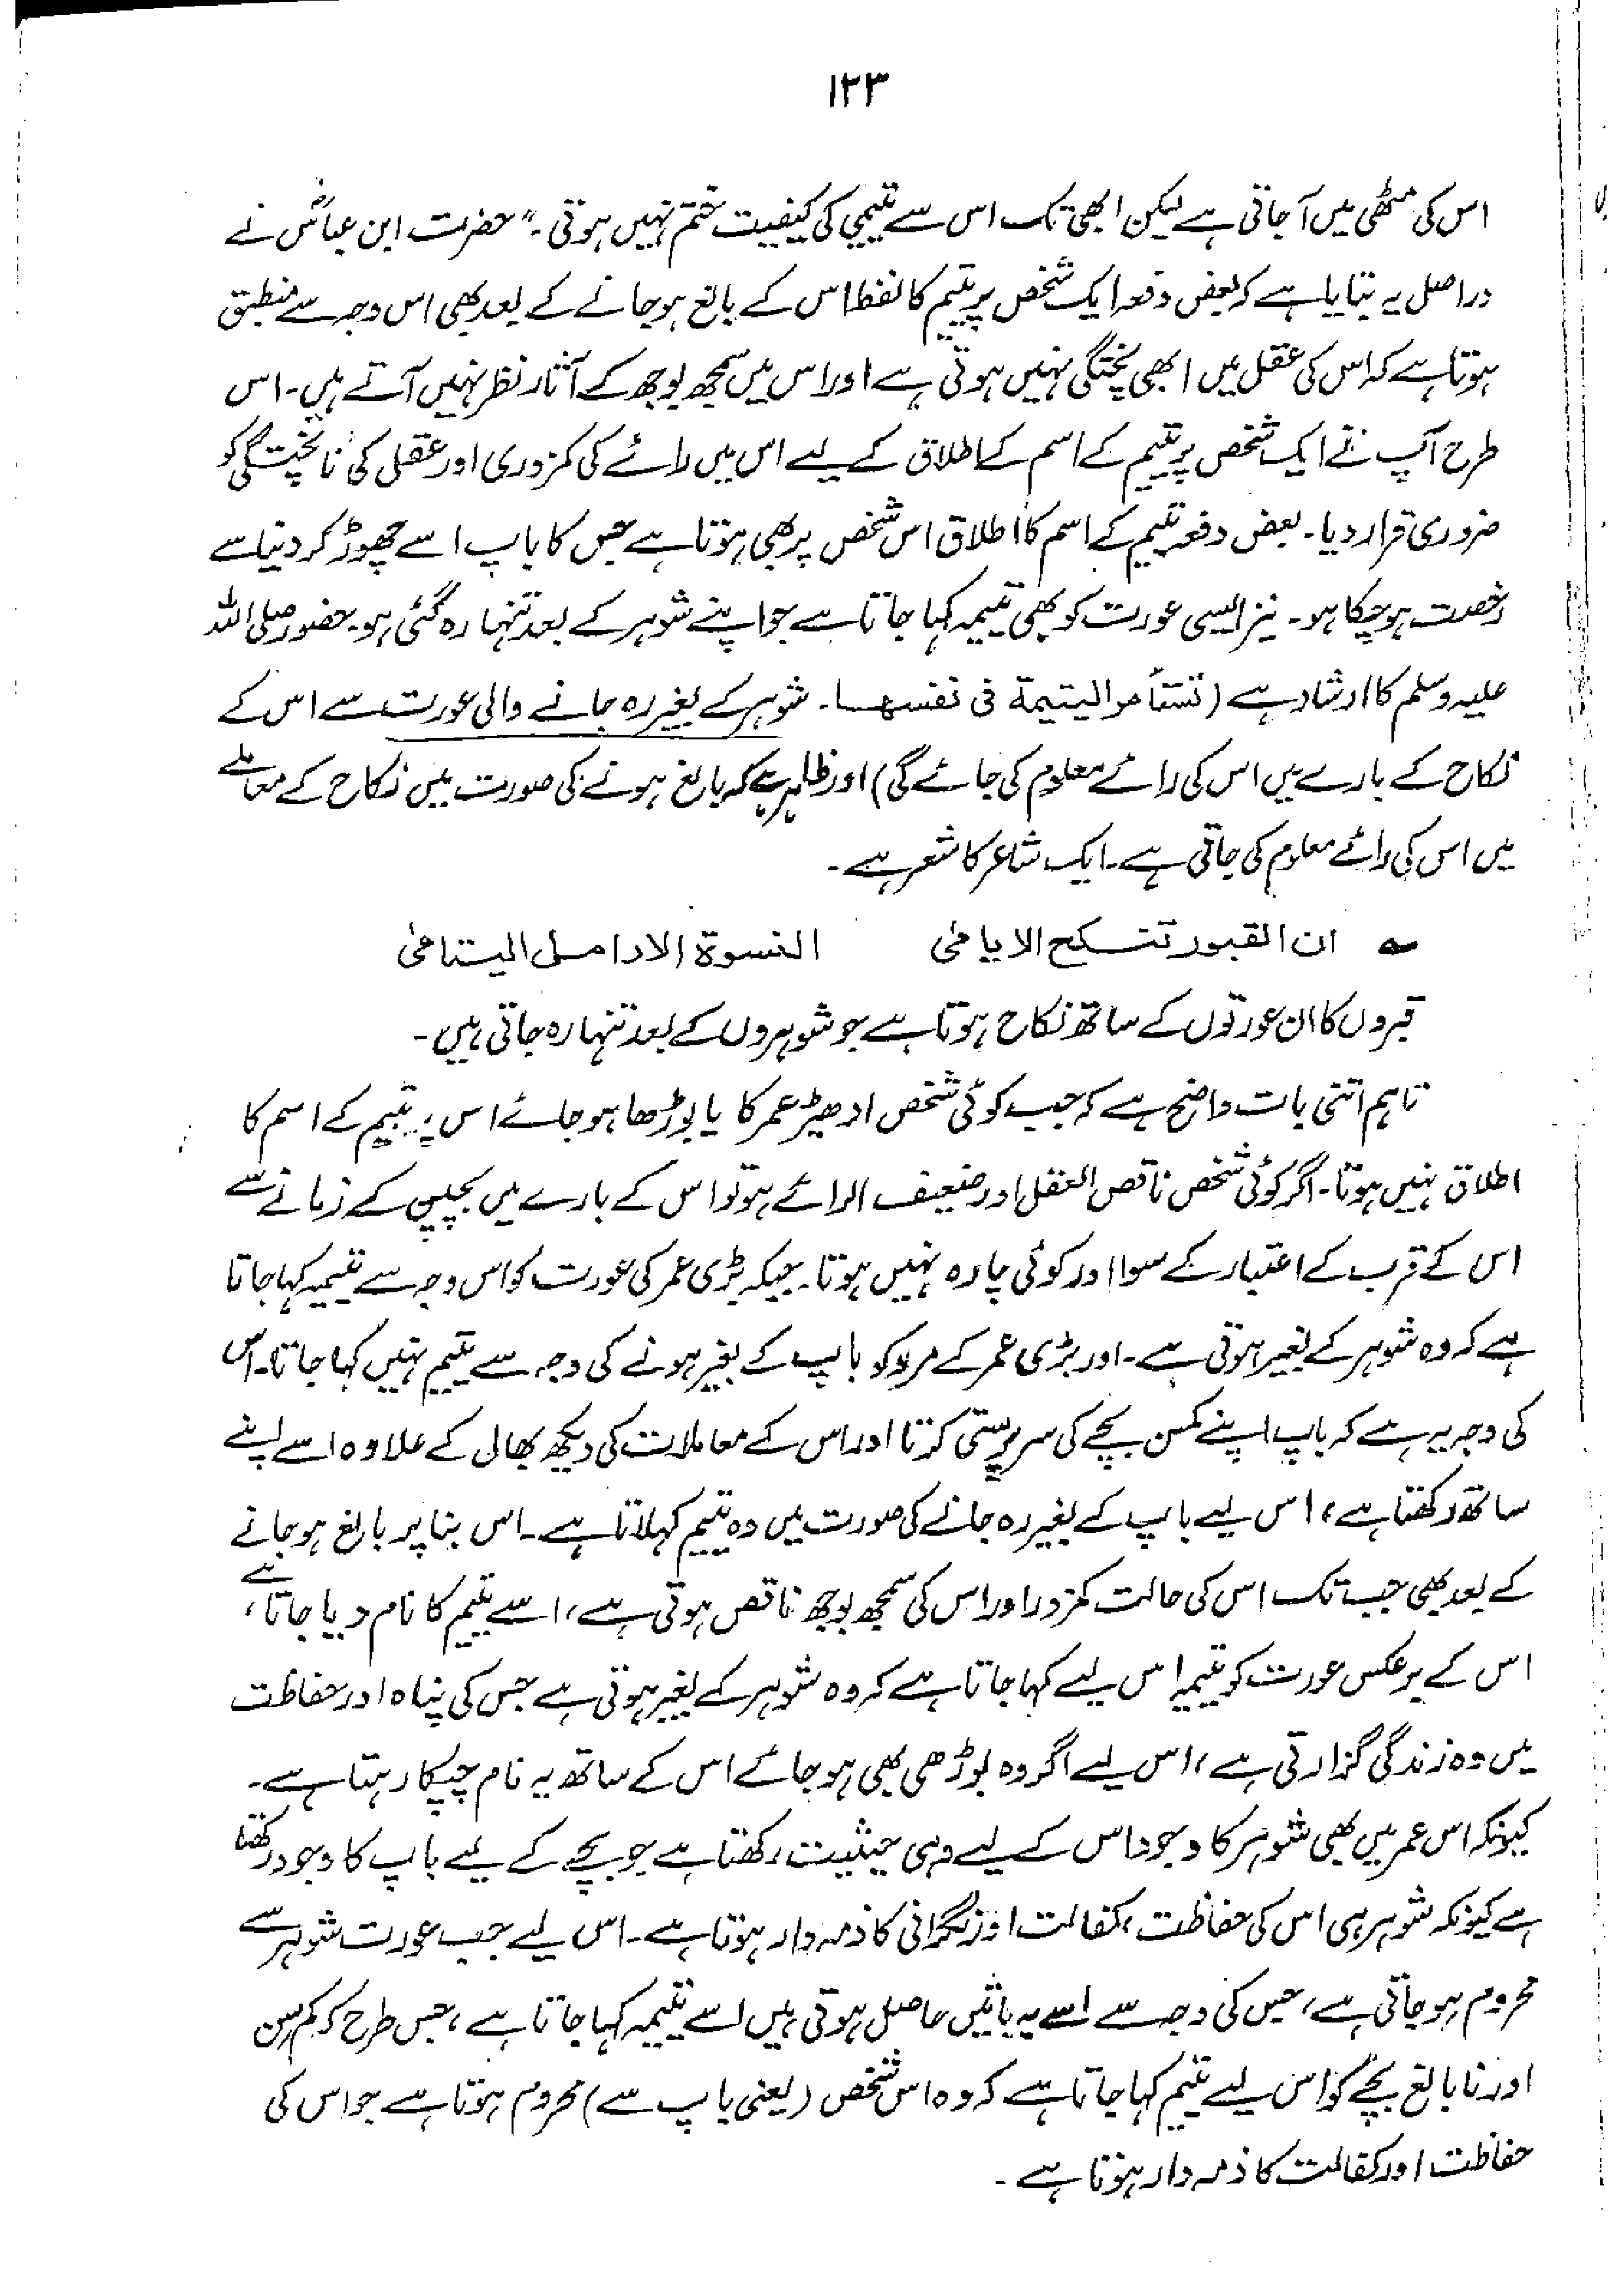 ۱۲۳
اس کی مٹھی میں آ جاتی ہے لیکن ابھی تک اس سے یتیمی کی کیفیت ختم نہیں ہوتی۔" حضرت ابن عباسؓ نے
دراصل یہ بتایا ہے کہ بعض دفعہ ایک شخص پر یتیم کا لفظ اس کے بالغ ہو جانے کے بعد بھی اس وجہ سے منطبق
ہوتا ہے کہ اس کی عقل میں ابھی پختگی نہیں ہوتی ہے اور اس میں سمجھ بوجھ کے آثار نظر نہیں آتے ہیں۔ اس
طرح آپ نے ایک شخص پر یتیم کے اسم کے اطلاق کے لیے اس میں رائے کی کمزوری اور عقل کی ناپختگی کو
ضروری قرار دیا۔ بعض دفعہ یتیم کے اسم کا اطلاق اس شخص پر بھی ہوتا ہے جس کا باپ اسے چھوڑ کر دنیا سے
رخصت ہو چکا ہو۔ نیز ایسی عورت کو بھی یتیمہ کہا جاتا ہے جو اپنے شوہر کے بعد تنہا رہ گئی ہو۔ حضور صلی اللہ
علیہ وسلم کا ارشاد ہے (تستأمر الیتیمة فی نفسھا۔ شوہر کے بغیر رہ جانے والی عورت سے اس کے
نکاح کے بارے میں اس کی رائے معلوم کی جائے گی) اور ظاہر ہے کہ بالغ ہونے کی صورت میں نکاح کے معاملے
میں اس کی رائے معلوم کی جاتی ہے۔ ایک شاعر کا شعر ہے۔
؎ ان القبور تنکح الایامیٰ النسوة الارامل الیتامیٰ
قبروں کا ان عورتوں کے ساتھ نکاح ہوتا ہے جو شوہروں کے بعد تنہا رہ جاتی ہیں۔
تاہم اتنی بات واضح ہے کہ جب کوئی شخص ادھیڑ عمر کا یا بوڑھا ہو جائے اس پر یتیم کے اسم کا
اطلاق نہیں ہوتا۔ اگر کوئی شخص ناقص العقل اور ضعیف الرائے ہو تو اس کے بارے میں بچپن کے زمانے سے
اس کے قرب کے اعتبار کے سوا اور کوئی چارہ نہیں ہوتا۔ جبکہ بڑی عمر کی عورت کو اس وجہ سے یتیمہ کہا جاتا
ہے کہ وہ شوہر کے بغیر ہوتی ہے۔ اور بڑی عمر کے مرد کو باپ کے بغیر ہونے کی وجہ سے یتیم نہیں کہا جاتا۔ اس
کی وجہ یہ ہے کہ باپ اپنے کمسن بچے کی سرپرستی کرتا اور اس کے معاملات کی دیکھ بھال کے علاوہ اسے اپنے
ساتھ رکھتا ہے، اس لیے باپ کے بغیر رہ جانے کی صورت میں وہ یتیم کہلاتا ہے۔ اس بنا پر بالغ ہو جانے
کے بعد بھی جب تک اس کی حالت کمزور اور اس کی سمجھ بوجھ ناقص ہوتی ہے، اسے یتیم کا نام دیا جاتا ہے،
اس کے برعکس عورت کو یتیمہ اس لیے کہا جاتا ہے کہ وہ شوہر کے بغیر ہوتی ہے جس کی پناہ اور حفاظت
میں وہ زندگی گزارتی ہے، اس لیے اگر وہ بوڑھی بھی ہو جائے اس کے ساتھ یہ نام چپکا رہتا ہے۔
کیونکہ اس عمر میں بھی شوہر کا وجود اس کے لیے وہی حیثیت رکھتا ہے جو بچے کے لیے باپ کا وجود رکھتا
ہے کیونکہ شوہر ہی اس کی حفاظت، کفالت اور نگرانی کا ذمہ دار ہوتا ہے۔ اس لیے جب عورت شوہر سے
محروم ہو جاتی ہے، جس کی وجہ سے اسے یہ باتیں حاصل ہوتی ہیں اسے یتیمہ کہا جاتا ہے، جس طرح کہ کم سن
اور نابالغ بچے کو اس لیے یتیم کہا جاتا ہے کہ وہ اس شخص (یعنی باپ سے) محروم ہوتا ہے جو اس کی
حفاظت اور کفالت کا ذمہ دار ہوتا ہے۔